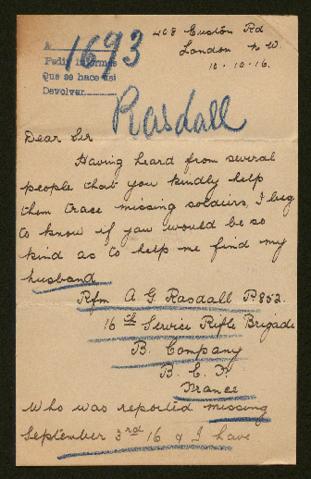 408 Euston Rd
London N.W.
10.10.16.
A
1693
Pedir informes
Que se hace así
Devolver
Rasdall
Dear Sir
Having heard from several
people that you kindly help
them trace missing soldiers, I beg
to know if you would be so
kind as to help me find my
husband
Rfm A G Rasdall P852.
16th Service Rifle Brigade
B. Company
B. E. F.
France
Who was reported missing
September 3rd 16 & I have